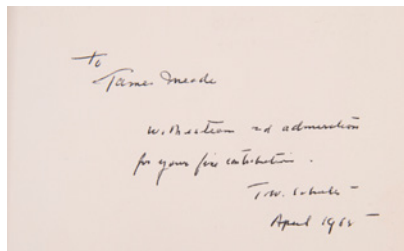 To
James Meade
with esteem and admiration
for your fine contribution.
T.W. Schultz
April 1965